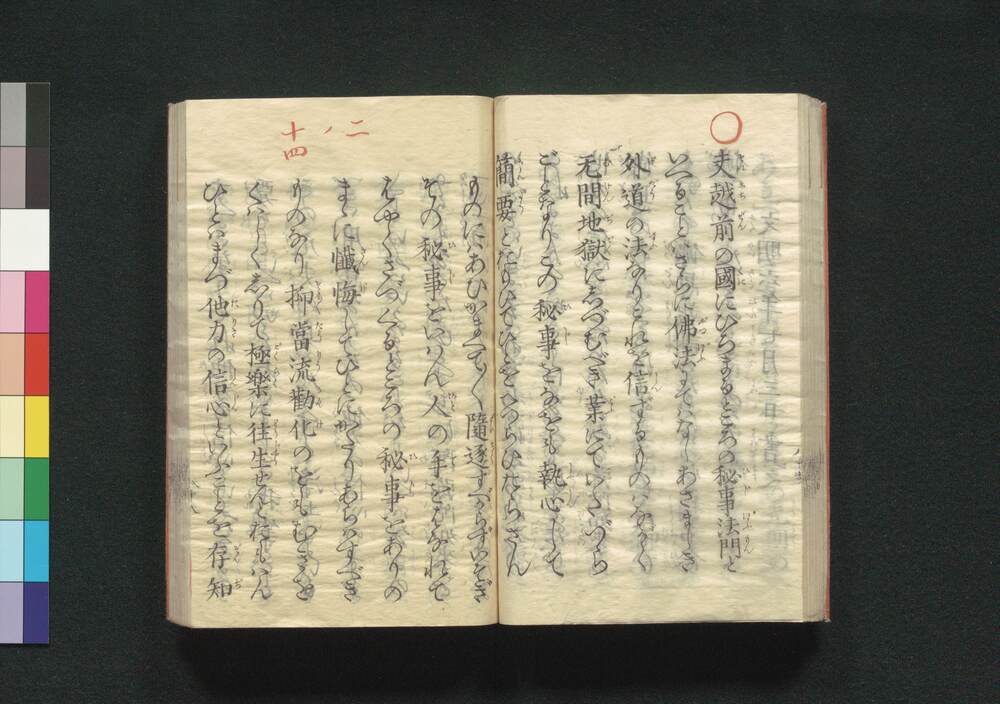 夫越前の國にひろまるところの秘事法門と
いへることはさらに佛法にてはなしあさましき
外道の法なりこれを信ずるものはながく
无間地獄にしづむべき業にていたづら
ごとなりこの秘事をなをも執心して
簡要とおもひてひとをへつらひたらさん
二ノ十四
ものにはあひかまへて〱隨逐すべからずいそぎ
その秘事をいはん人の手をはなれて
はやくさづくるところの秘事をありの
まゝに懺悔してひとにかたりあらはすべき
ものなり抑當流勸化のをもむきを
くはしくしりて極樂に往生せんとおもはん
ひとはまづ他力の信心といふことを存知